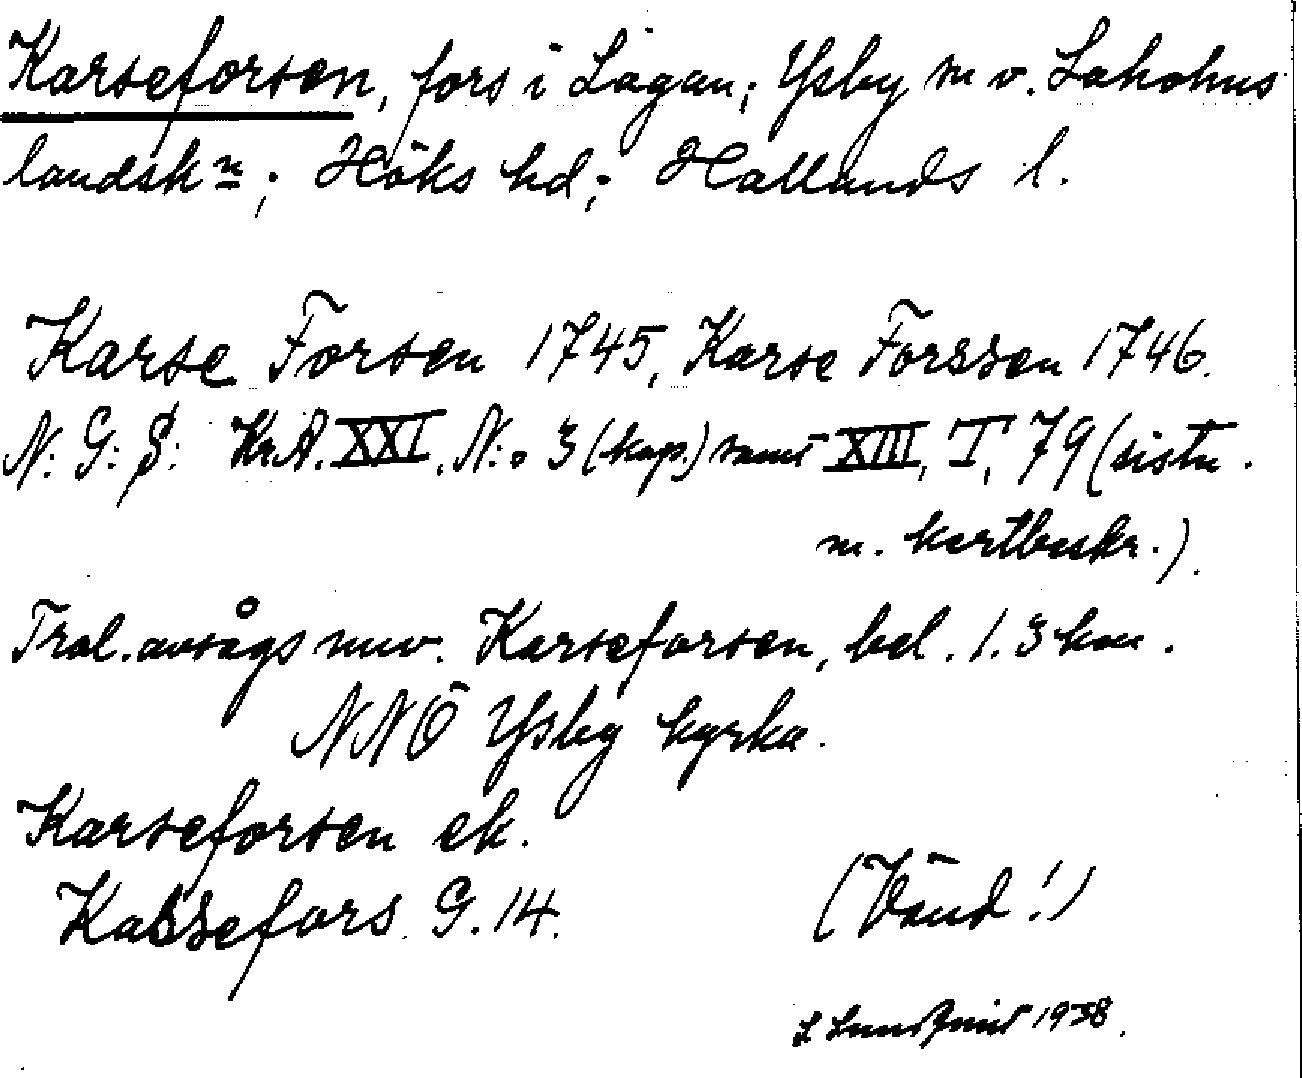 Karseforsen, fors i Lagan; Ysby sn o. Laholms
landskn; Höks hd; Hallands l.
Karse Forsen 1745, Karse Forssen 1746.
N: G: S: Kr.A. XXI, N:o 3 (kop.) samt XIII, I, 79 (sistn.
m. kartbeskr.).
Trol. avsågs nuv. Karseforsen, bel. 1.3 km.
NNÖ Ysby kyrka.
Karseforsen ek.
Kassefors G. 14.
(Vänd!)
1938.